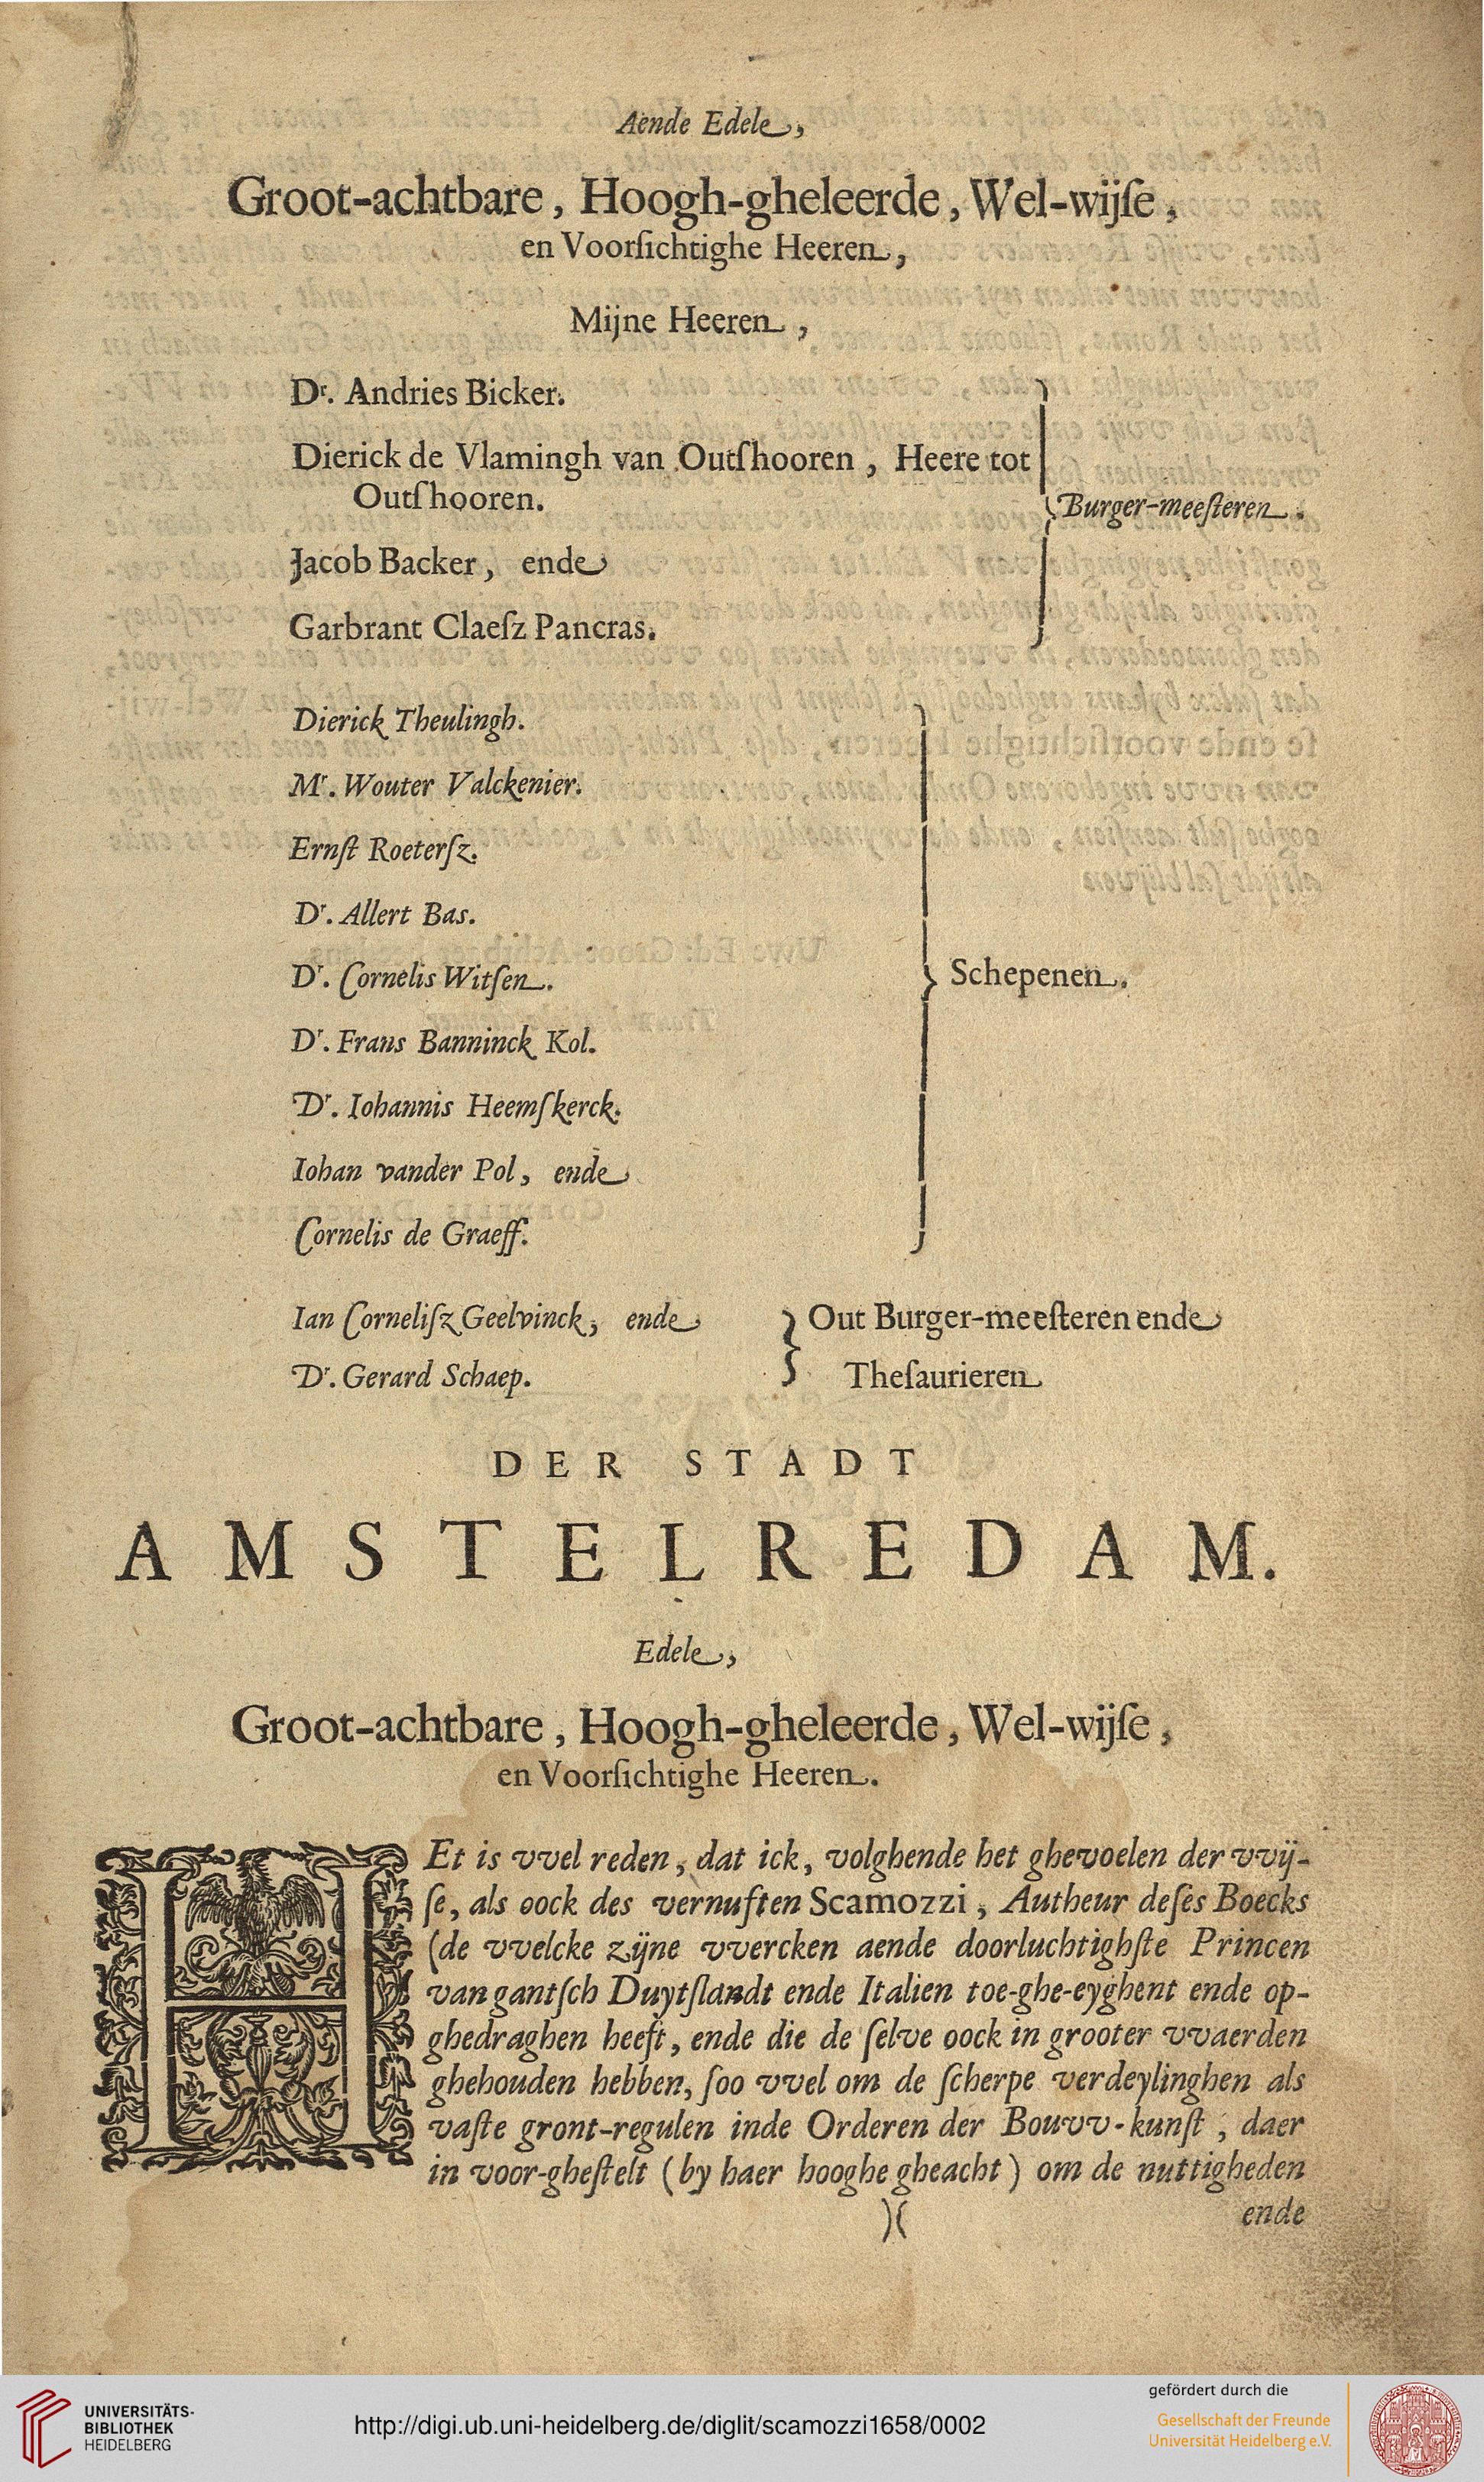 Aende Edele,
Groot-achtbare, Hoogh-gheleerde, Wel-wijſe,
en Voorſichtighe Heeren,
Mijne Heeren,
Dr. Andries Bicker.
Dierick de Vlamingh van Outſhooren, Heere tot
Outſhooren.
Burger-meeſteren.
Jacob Backer, ende
Garbrant Claeſz Pancras.
Dierick Theulingh.
Mr. Wouter Valckenier.
Ernſt Roeterſz.
Dr. Allert Bas.
Dr. Cornelis Witſen.
Schepenen.
Dr. Frans Banninck Kol.
Dr. Iohannis Heemſkerck.
Iohan vander Pol, ende
Cornelis de Graeff.
Ian Corneliſz Geelvinck, ende
Out Burger-meeſteren ende
Dr. Gerard Schaep.
Theſaurieren
DER STADT
AMSTELREDAM.
Edele,
Groot-achtbare, Hoogh-gheleerde, Wel-wijſe,
en Voorſichtighe Heeren.
HEt is vvel reden, dat ick, volghende het ghevoelen der vvij-
ſe, als oock des vernuften Scamozzi, Autheur deſes Boecks
(de vvelcke zijne vvercken aende doorluchtighſte Princen
van gantſch Duytſlandt ende Italien toe-ghe-eyghent ende op-
ghedraghen heeft, ende die de ſelve oock in grooter vvaerden
ghehouden hebben, ſoo vvel om de ſcherpe verdeylinghen als
vaſte gront-regulen inde Orderen der Bouvv-kunſt, daer
in voor-gheſtelt (by haer hooghe gheacht) om de nuttigheden
)(
ende
UNIVERSITÄTS-
BIBLIOTHEK
HEIDELBERG
http://digi.ub.uni-heidelberg.de/diglit/scamozzi1658/0002
gefördert durch die
Gesellschaft der Freunde
Universität Heidelberg e.V.